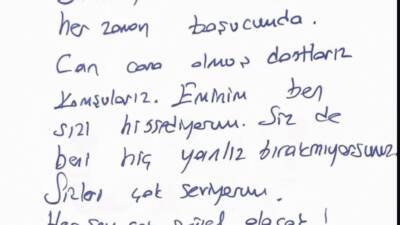 her zaman başucunda.
Can cana olmuş dostlarız
Komşularız. Eminim ben
sizi hissediyorum. Siz de
beni hiç yanlız bırakmıyorsunuz
Sizleri çok seviyorum.
Her şey çok güzel olacak!